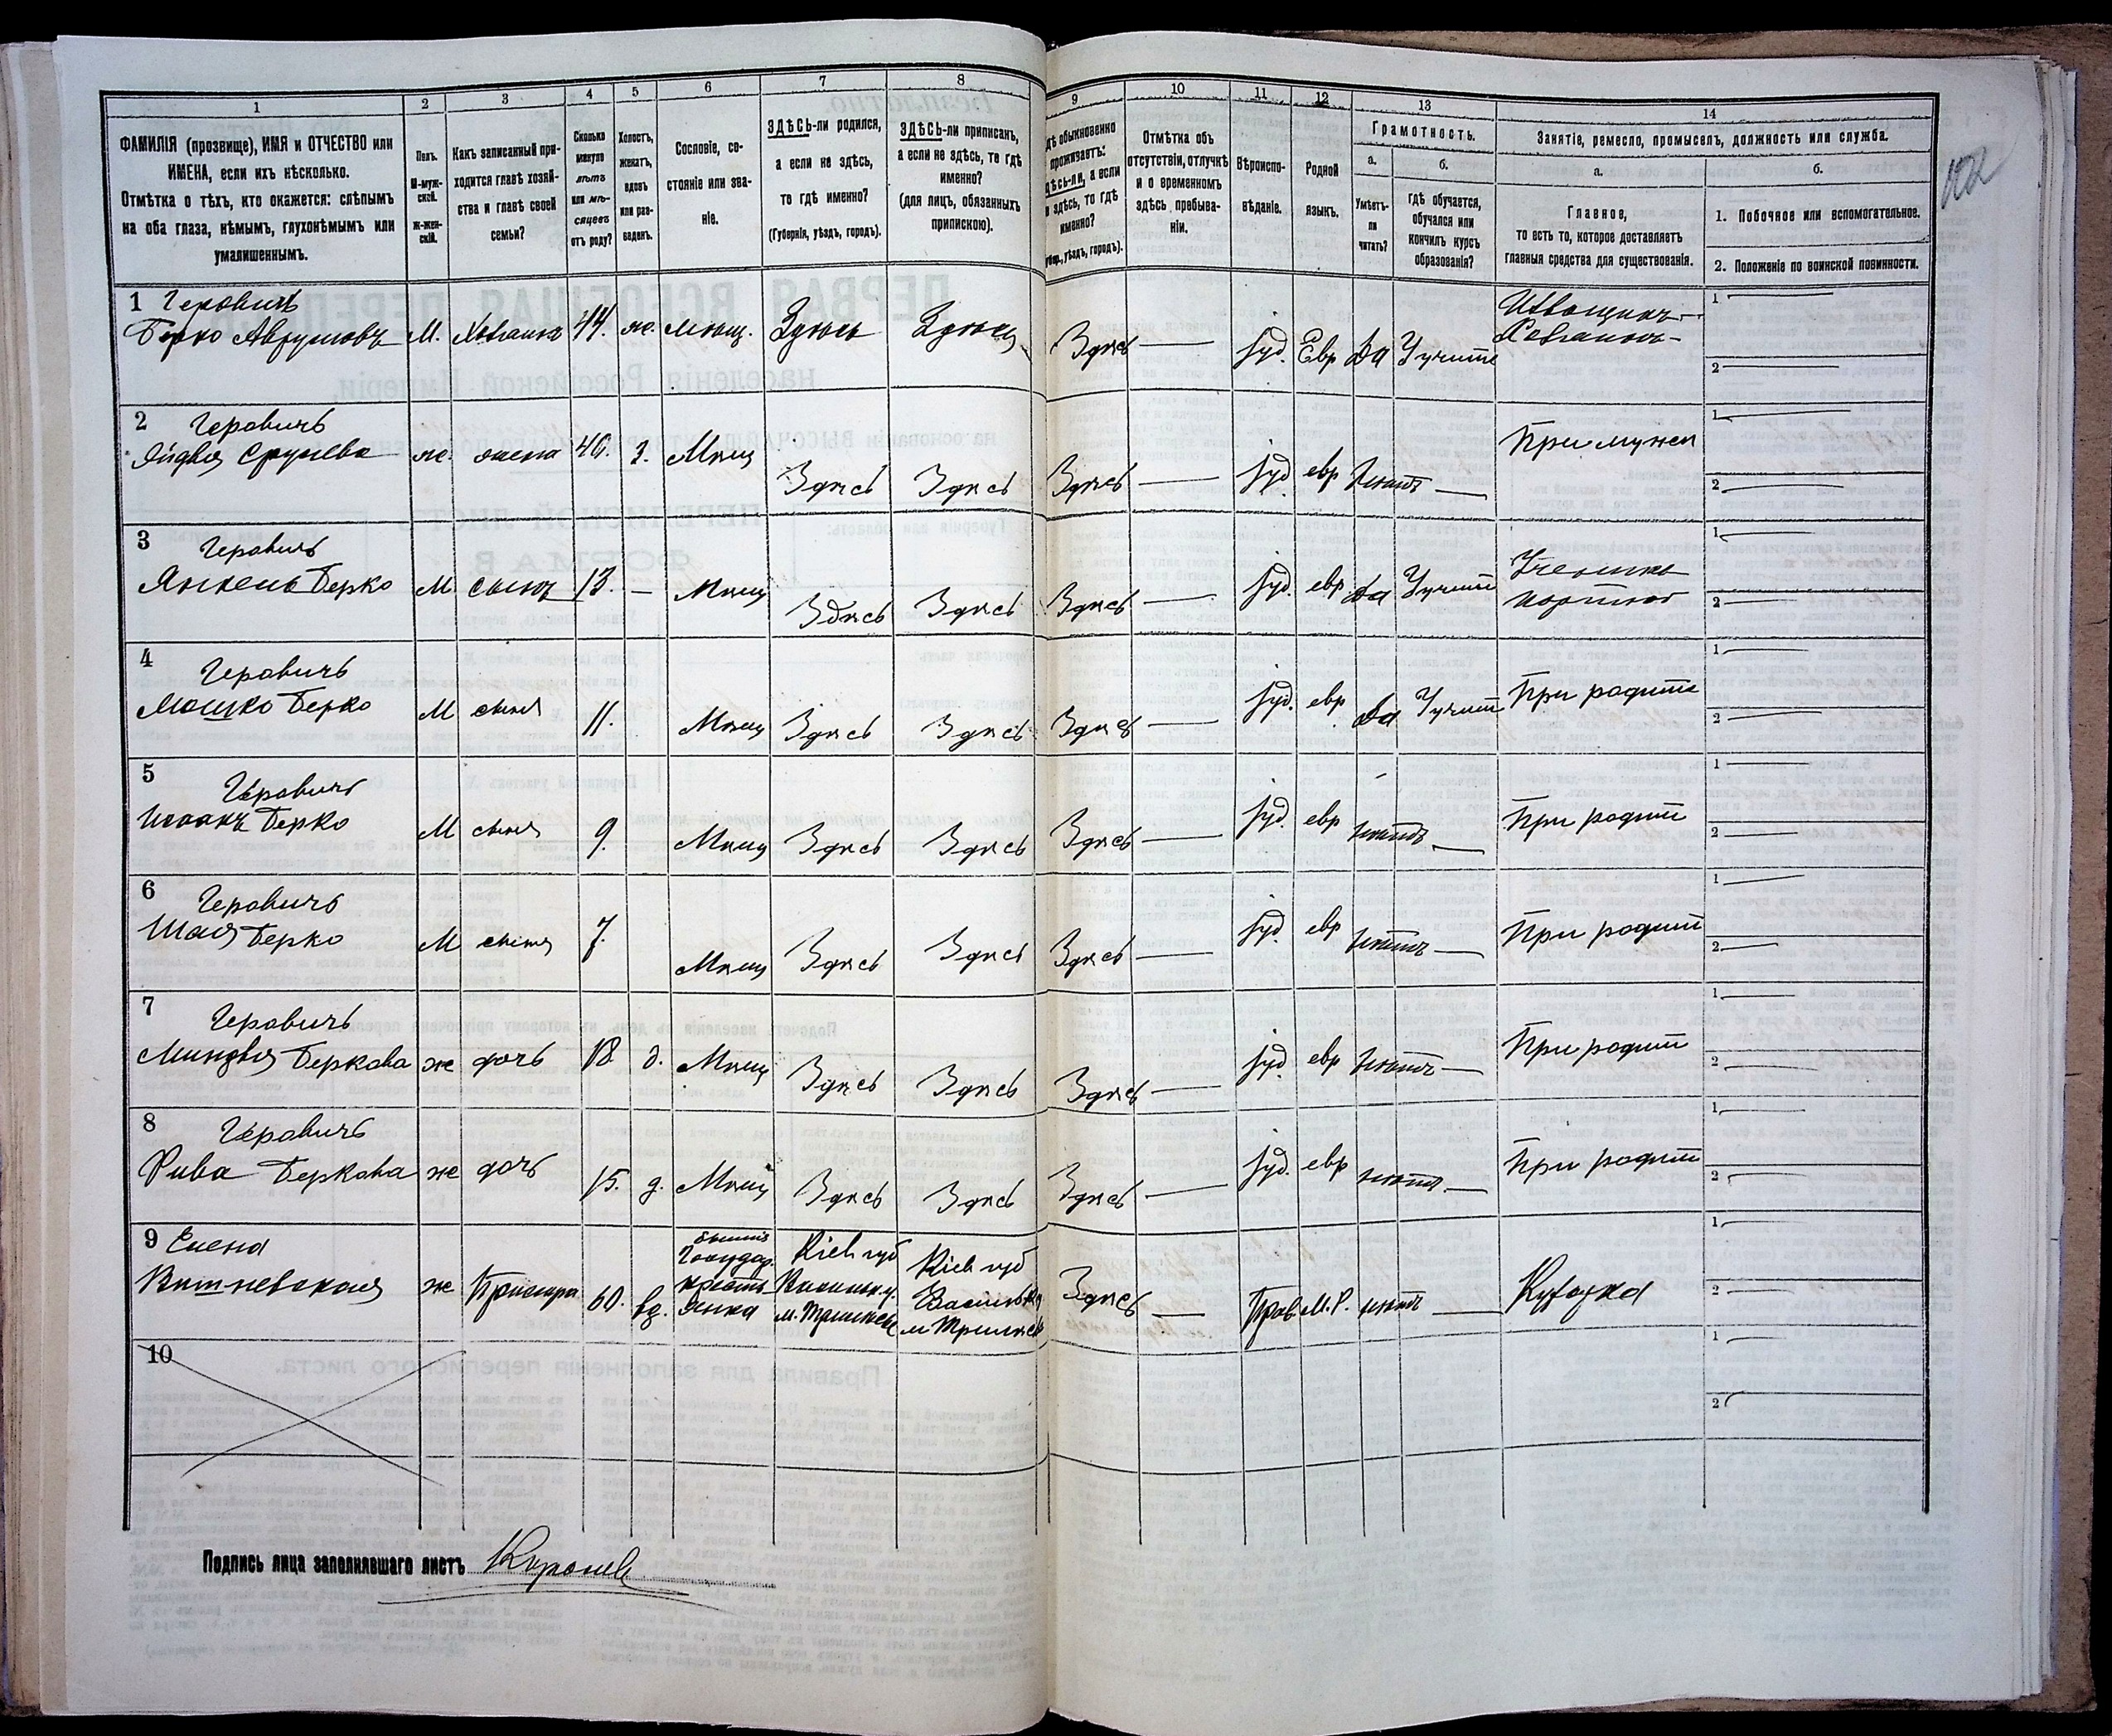 1 2 3 4 5 6 7 8 9 10 11 12 13 14
ФАМИЛІЯ (прозвище), ИМЯ и ОТЧЕСТВО или
ИМЕНА, если ихъ нѣсколько.
Отмѣтка о тѣхъ, кто окажется: слѣпымъ
на оба глаза, нѣмымъ, глухонѣмымъ или
умалишеннымъ.
Полъ.
М-муж-
ской.
Ж-жен-
скій.
Какъ записанный при-
ходится главѣ хозяй-
ства и главѣ своей
семьи?
Сколько
минуло
лѣтъ
или мѣ-
сяцевъ
отъ роду?
Холостъ,
женатъ,
вдовъ
или раз-
веденъ.
Сословіе, со-
стояніе или зва-
ніе.
ЗДѢСЬ-ли родился,
а если не здѣсь,
то гдѣ именно?
(Губернія, уѣздъ, городъ).
ЗДѢСЬ-ли приписанъ,
а если не здѣсь, то гдѣ
именно?
(для лицъ, обязанныхъ
припискою).
дѣ обыкновенно
проживаетъ:
дѣсь-ли, а если
здѣсь, то гдѣ
именно?
уѣздъ, городъ).
Отмѣтка объ
отсутствіи, отлучкѣ
и о временномъ
здѣсь пребыва-
ніи.
Вѣроиспо-
вѣданіе.
Родной
языкъ.
Грамотность.
а.
Умѣетъ-
ли
читать?
б.
Гдѣ обучается,
обучался или
кончилъ курсъ
образованія?
Занятіе, ремесло, промыселъ, должность или служба.
а.
Главное,
то есть то, которое доставляетъ
главныя средства для существованія.
б.
1. Побочное или вспомогательное.
2. Положеніе по воинской повинности.
122
1 Геровичъ
Берко Аврумовъ М. Хозяинъ 44. ж. мѣщ. Здѣсь Здѣсь Здѣсь — Іуд. Евр Да Учите Извощикъ
Хозяинъ
1
2
2 Геровичъ
Срулева ж. жена 46. З. Мѣщ Здѣсь Здѣсь Здѣсь — Іуд евр Нѣтъ — При мужеи
1
2
3 Геровичъ
Янкель Берко М сынъ 13. — Мѣщ Здѣсь Здѣсь Здѣсь — Іуд. евр Да Учит Ученикъ
портнов
1
2
4 Геровичъ
Мошко Берко М сынъ 11. Мѣщ Здѣсь Здѣсь Здѣсь — Іуд. евр Да Учит При родите
1
2
5 Геровичъ
Исаакъ Берко М сынъ 9. Мѣщ Здѣсь Здѣсь Здѣсь — Іуд. евр нѣтъ — При родит
1
2
6 Геровичъ
Шая Берко М сынъ 7. Мѣщ Здѣсь Здѣсь Здѣсь — Іуд. евр нѣтъ — При родит
1
2
7 Геровичъ
Миндля Беркова ж дочь 18 д. Мѣщ Здѣсь Здѣсь Здѣсь — Іуд. евр Нѣтъ — При родит
1
2
8 Геровичъ
Рива Беркова ж дочь 15. д. Мѣщ Здѣсь Здѣсь Здѣсь — Іуд. евр нѣтъ — При родит
1
2
9 Елена
Вишневская ж Прислуга 60. вд.
Государ.
крестья
янка
Кіев губ
Кіев губ
Васильк
Здѣсь — Прав М.Р. нѣтъ — Кухарка
1
2
10
1
2
Подпись лица заполнявшаго листъ